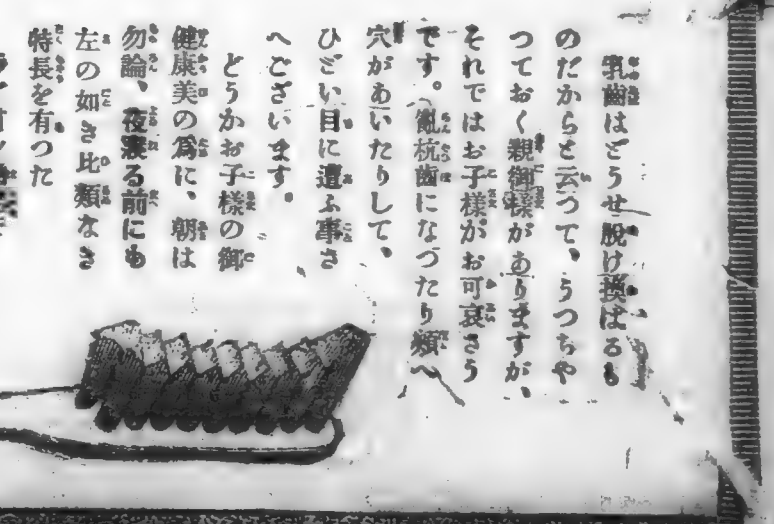 乳歯はどうせ脱け換はるも
のだからと云つて、うつちや
つておく親御樣がありますが、
それではお子樣がお可哀さう
です。亂杭歯になつたり頰へ
穴があいたりして、
ひどい目に遭ふ事さ
へございます。
どうかお子樣の御
健康美の爲に、朝は
勿論、夜寢る前にも
左の如き比類なき
特長を有つた